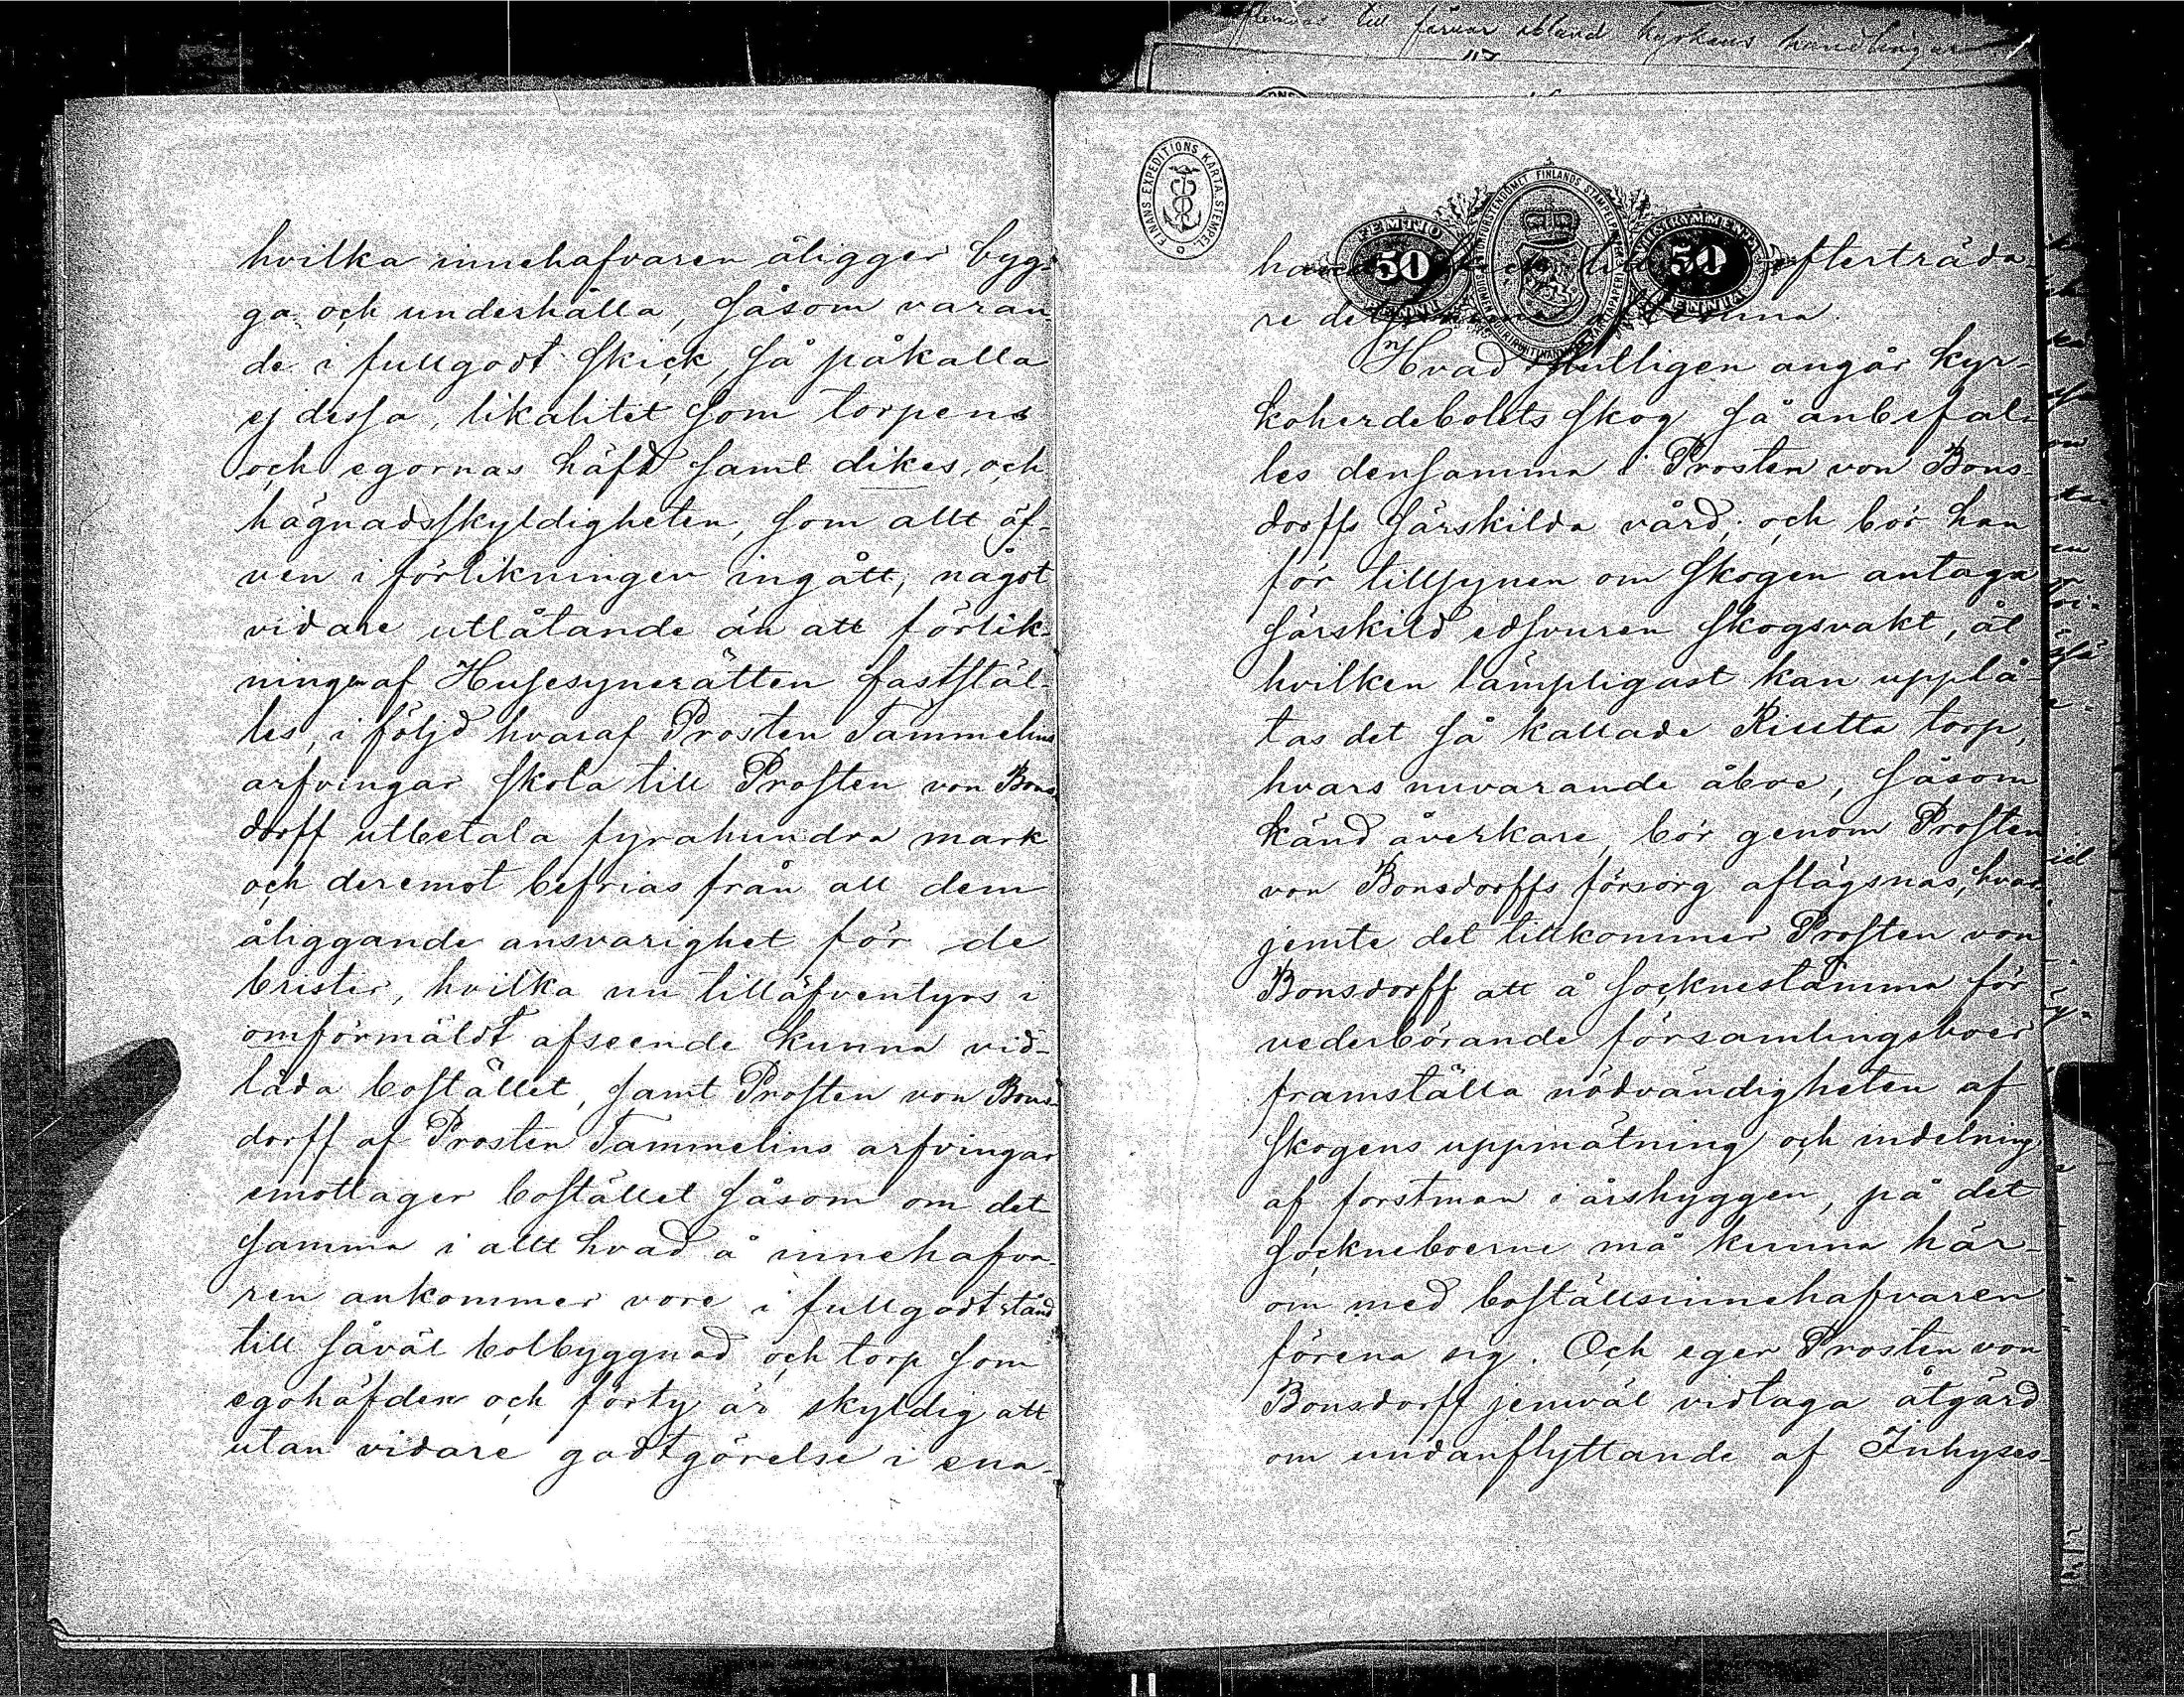 hvilka innehafvaren åligger byg-
ga och underhålla, såsom varan
de i fullgodt skick, så påkalla
ej dessa, likalitet som torpens
och egornas häfd samt dikes, och
hägnadsskyldigheten, som allt äf-
ven i förlikningen ingått, något
vidare utlåtande än att förlik-
ningen af Husesynerätten faststäl-
les, i följd hvaraf Prosten Tammelins
arfvingar skola till Prosten von Bons
dorff utbetala fyrahundra mark
och deremot befrias från all dem
åliggande ansvarighet för de
brister, hvilka nu tilläfventyrs i
omförmäldt afseende kunna vid-
låda bostället, samt Prosten von Bons-
dorff af Prosten Tammelins arfvingar
emottager bostället såsom om det
samma i allt hvad å innehafva-
ren ankommer vore i fullgodt stånd
till såväl bolbyggnad och torp som
egohäfden och förty är skyldig att
utan vidare godtgörelse i ena-
FINANS. EXPEDITIONS KARTA. STEMPEL.
FEMTIO 50 PENNI
50 PENNIÄ
efterträda-
re
Hvad slutligen angår kyr-
koherdebolets skog så anbefal-
les densamma i Prosten von Bons
dorffs särskilda vård; och bör han
för tillsynen om skogen antaga
särskild edsvuren skogsvakt, åt
hvilken lämpligast kan upplå-
tas det så kallade Riutta torp,
hvars nuvarande åboe, såsom
känd åverkare, bör genom Prosten
von Bonsdorffs försorg aflägsnas, hvar
jemte det tillkommer Prosten von
Bonsdorff att å sockenestämma för
vederbörande församlingsboer
framställa nödvändigheten af
skogens uppmätning och indelning
af forstman i årshyggen, på det
sockneboerne må kunna här-
om med boställsinnehafvaren
förena sig. Och eger Prosten von
Bonsdorff jemväl vidtaga åtgärd
om undanflyttande af Inhyses-
till förvar ibland kyrkans handlingar